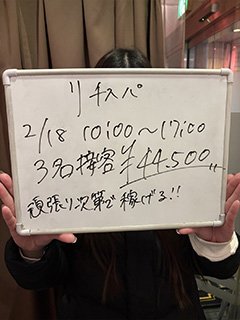 リチスパ
2/18 10:00〜17:00
3名接客 ¥44.500
頑張り次第で稼げる!!